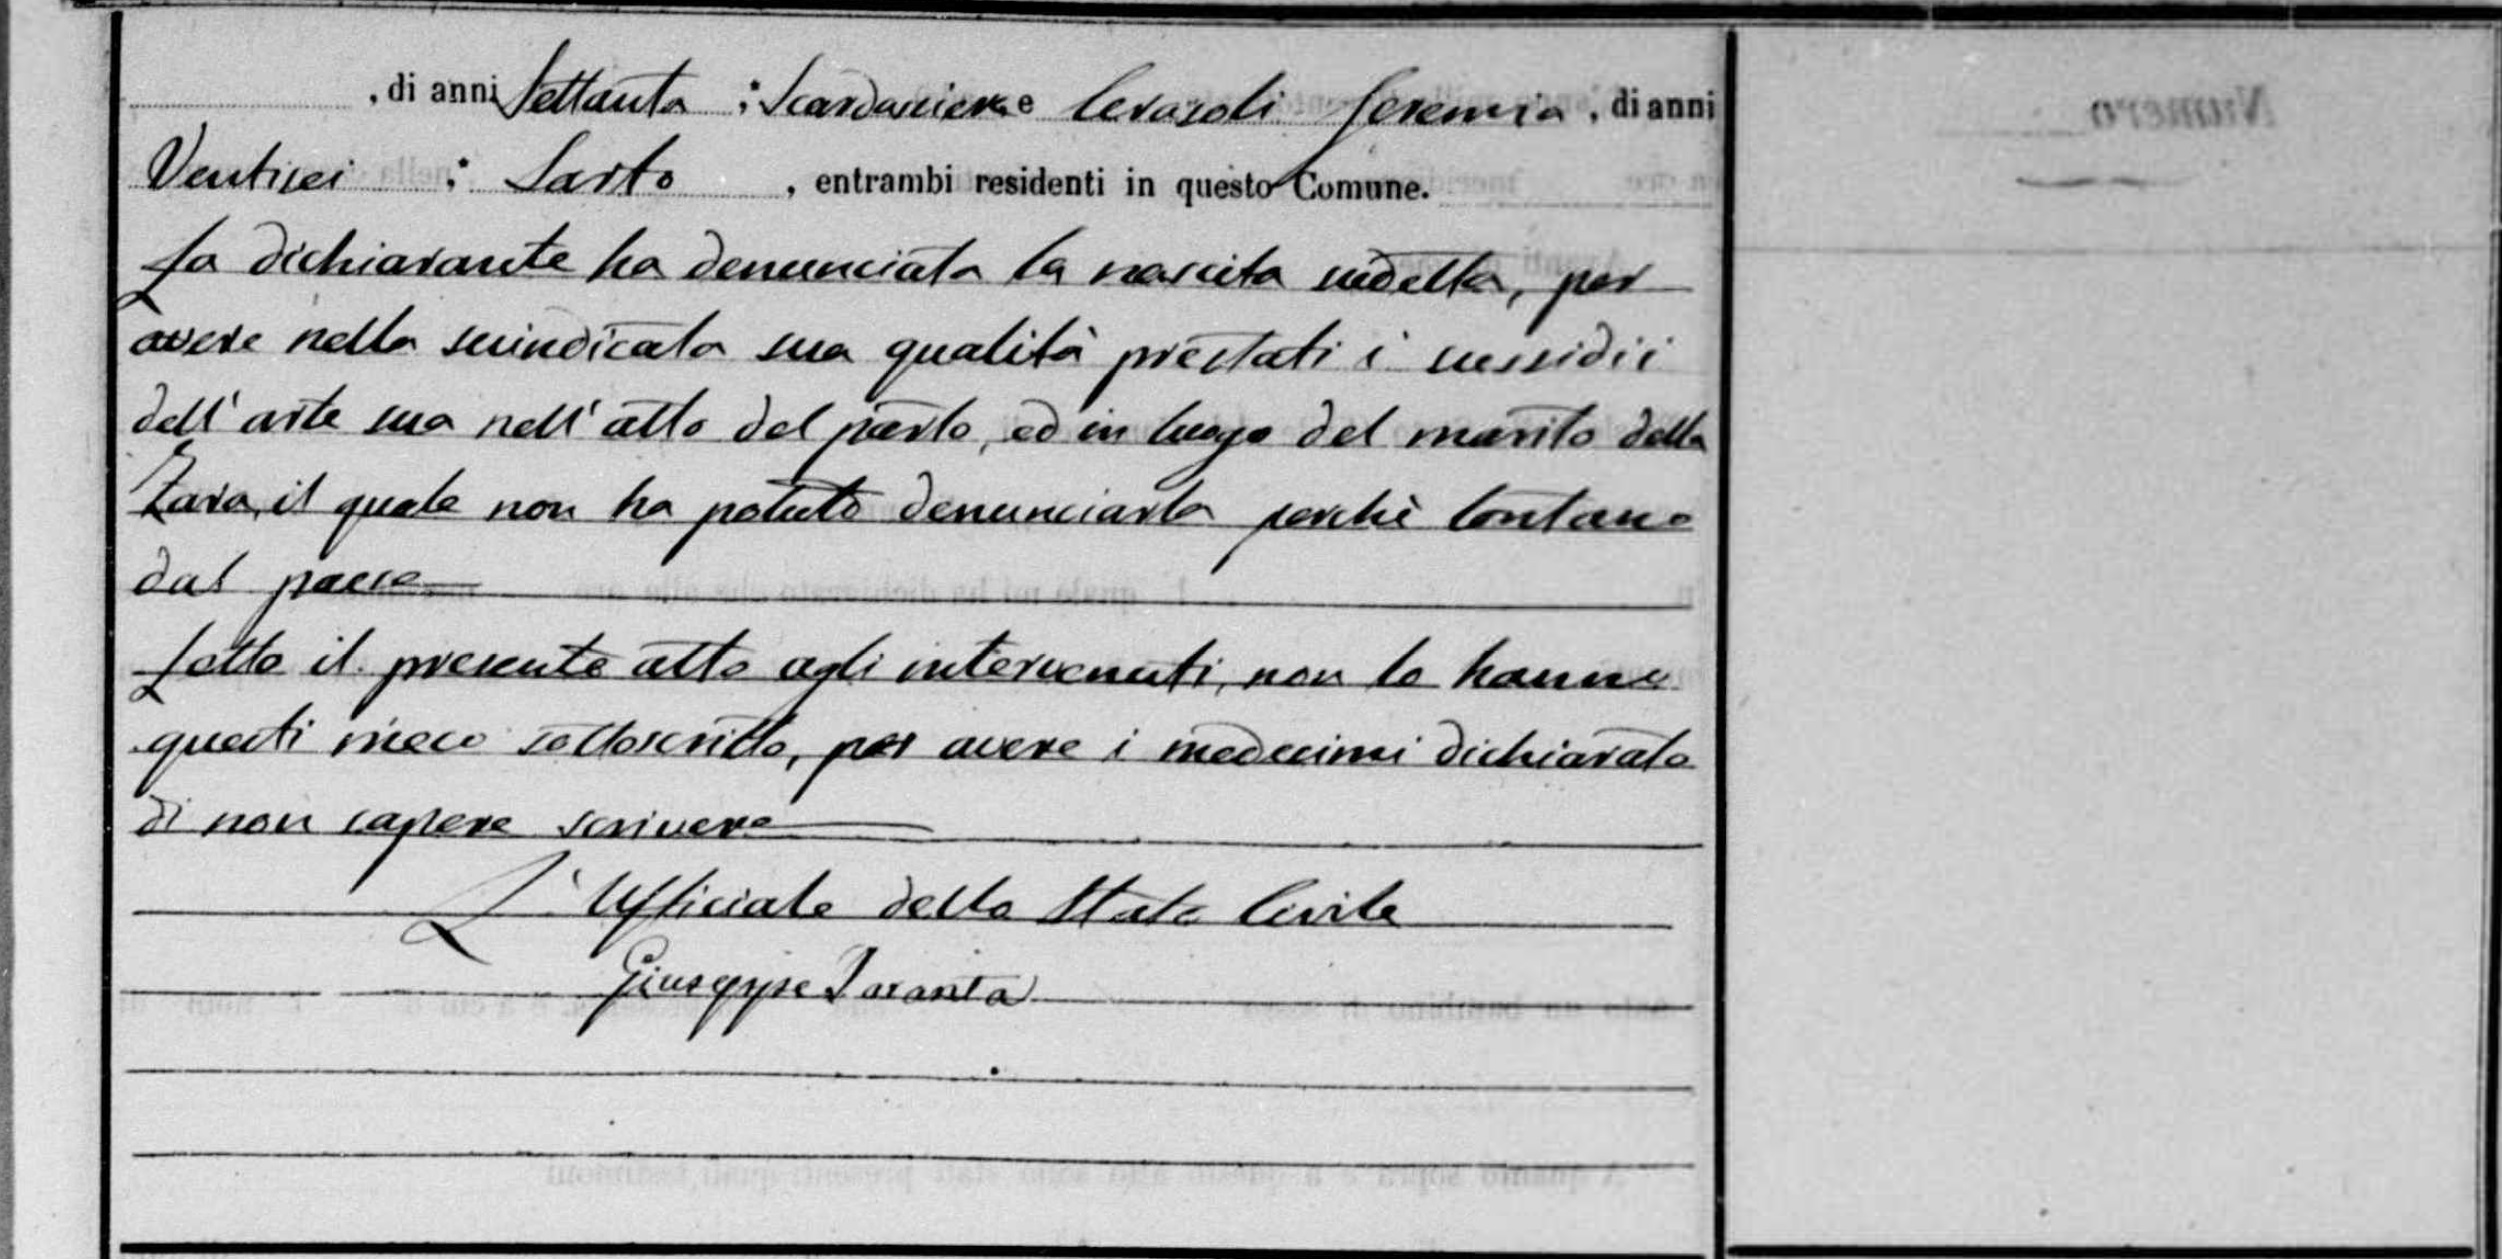 , di anni Settanta : Scardassiere e Cerasoli Geremia, di anni
Ventisei : Sarto , entrambi residenti in questo Comune.
La dichiarante ha denunciata la nascita sudetta, per
avere nella suindicata sua qualità prestati i sussidii
dell'arte sua nell'atto del parto, ed in luogo del marito della
Zara, il quale non ha potuto denunciarla perchè lontano
dal paese
Letto il presente atto agli intervenuti, non lo hanno
questi meco sottoscritto, per avere i medesimi dichiarato
di non sapere scrivere
L'Ufficiale dello Stato Civile
Giuseppe Taranta
Numero